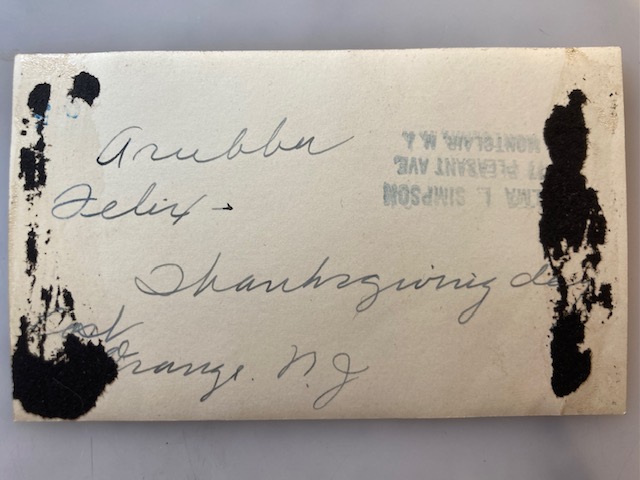 a rubber
Felix -
Thanksgiving day
East
Orange. N. J
L. SIMPSON
PLEASANT AVE.
MONTCLAIR, N. J.